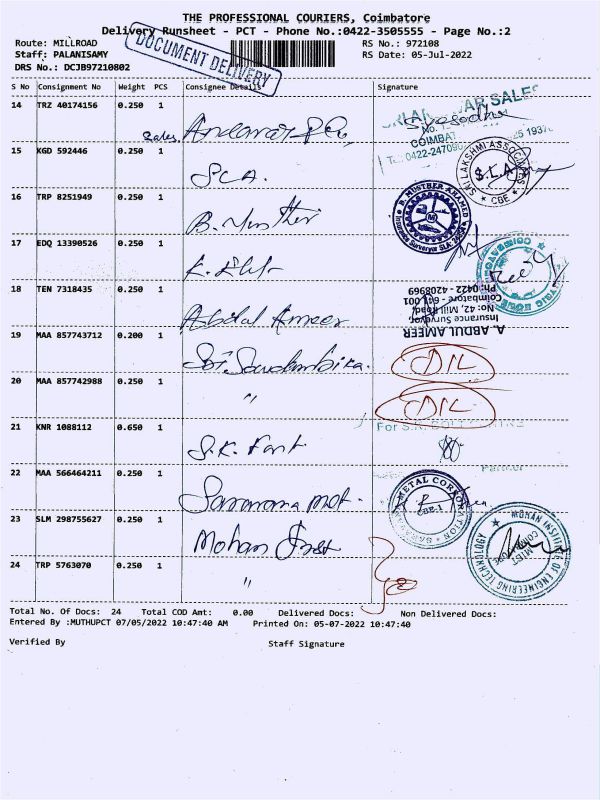 THE PROFESSIONAL COURIERS, Coimbatore
Delivery Runsheet - PCT - Phone No.:0422-3505555 - Page No.:2
Route: MILLROAD
RS No.: 972108
Staff: PALANISAMY
RS Date: 05-Jul-2022
DRS No.: DCJB97210802
DOCUMENT DELIVERY
S No Consignment No Weight PCS Consignee Details Signature
14 TRZ 40174156 0.250 1
Sales
SALES
COIMBAT
15 KGD 592446 0.250 1
S.L.A.
SRI LAKSHMI ASSOCIATES
S.L.A
CBE
16 TRP 8251949 0.250 1
B. Musthir
B. MUSTHER AHAMED
Insurance Surveyor
17 EDQ 13390526 0.250 1
COIMBATORE
18 TEN 7318435 0.250 1
Abdul Ameer
A. ABDUL AMEER
Insurance Surveyor,
No: 42, Mill Road,
Coimbatore - 641 001
Ph: 0422 - 4208969
19 MAA 857743712 0.200 1
Sri. Soudambika.
D/L
20 MAA 857742988 0.250 1
"
D/L
21 KNR 1088112 0.650 1
S.K. Fant
For S.K.
22 MAA 566464211 0.250 1
Saravana Mot.
METAL CORPORATION
23 SLM 298755627 0.250 1
Mohan Inst
MOHAN INSTITUTE OF ENGINEERING TECHNOLOGY
24 TRP 5763070 0.250 1
"
Total No. Of Docs: 24 Total COD Amt: 0.00 Delivered Docs: Non Delivered Docs:
Entered By :MUTHUPCT 07/05/2022 10:47:40 AM Printed On: 05-07-2022 10:47:40
Verified By Staff Signature